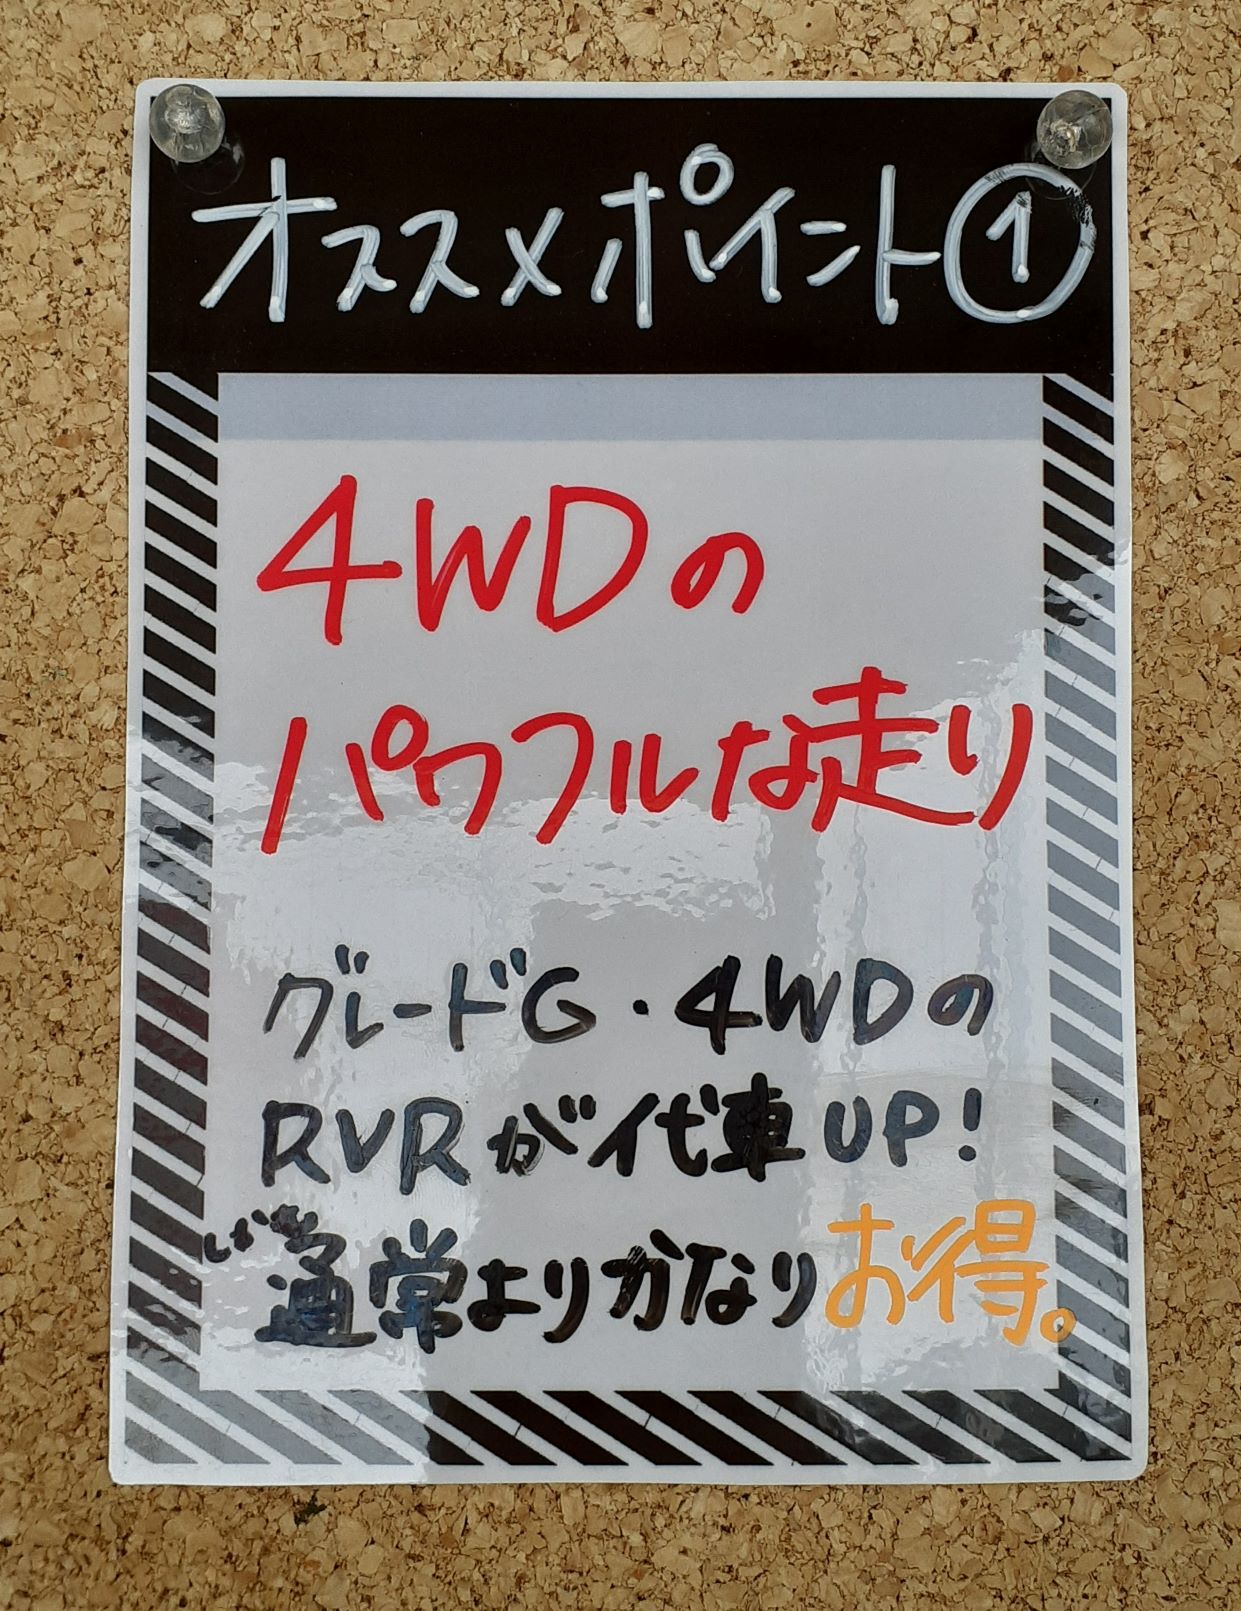 オススメポイント①
4WDの
パワフルな走り
グレードG・4WDの
RVRが代車UP!
通常よりかなりお得。